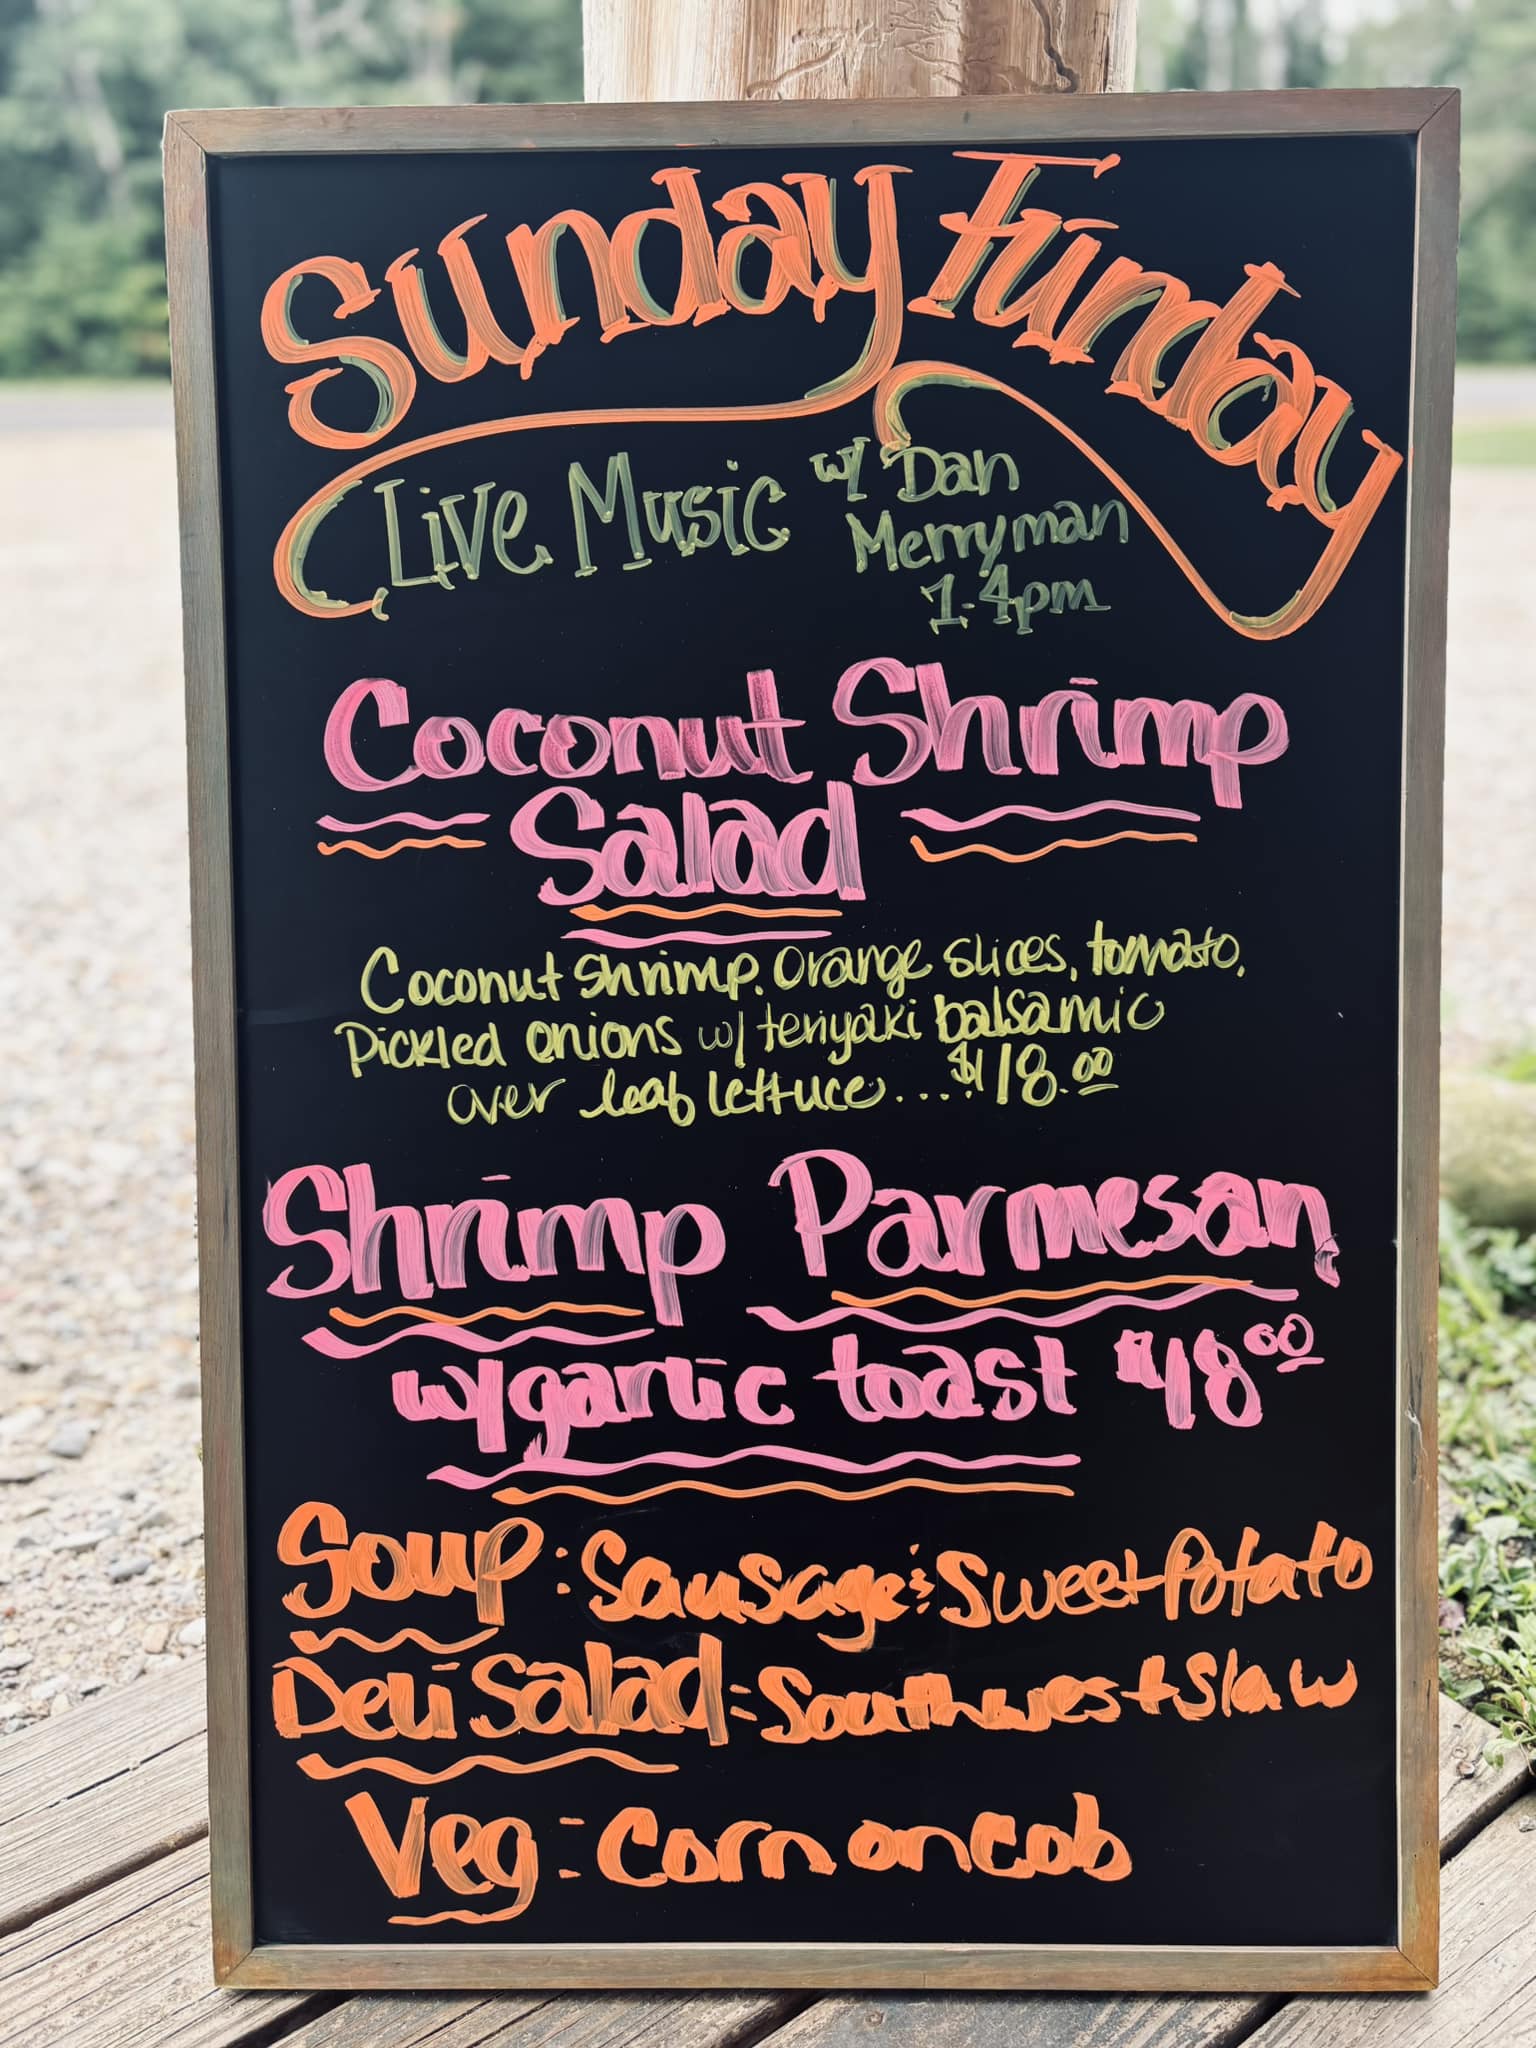 Sunday Funday
Live Music w/ Dan
Merryman
1-4pm
Coconut Shrimp
Salad
Coconut shrimp, orange slices, tomato,
Pickled onions w/ teriyaki balsamic
over leaf lettuce....$18.00
Shrimp Parmesan
w/garlic toast $18.00
Soup: Sausage & Sweet Potato
Deli Salad: Southwest Slaw
Veg: Corn on Cob